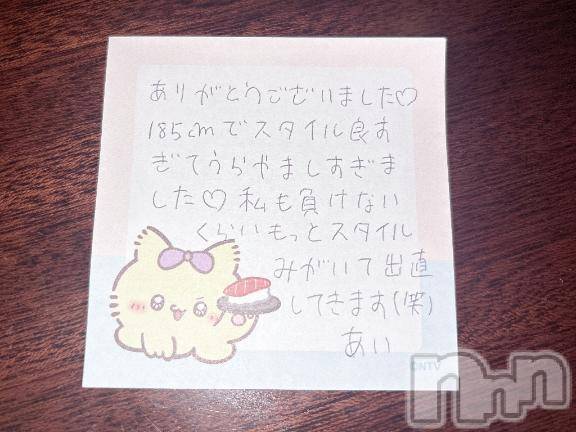 ありがとうございました♡
185cmでスタイル良す
ぎてうらやましすぎま
した♡私も負けない
くらいもっとスタイル
みがいて出直
してきます(笑)
あい
©NTV
nnn